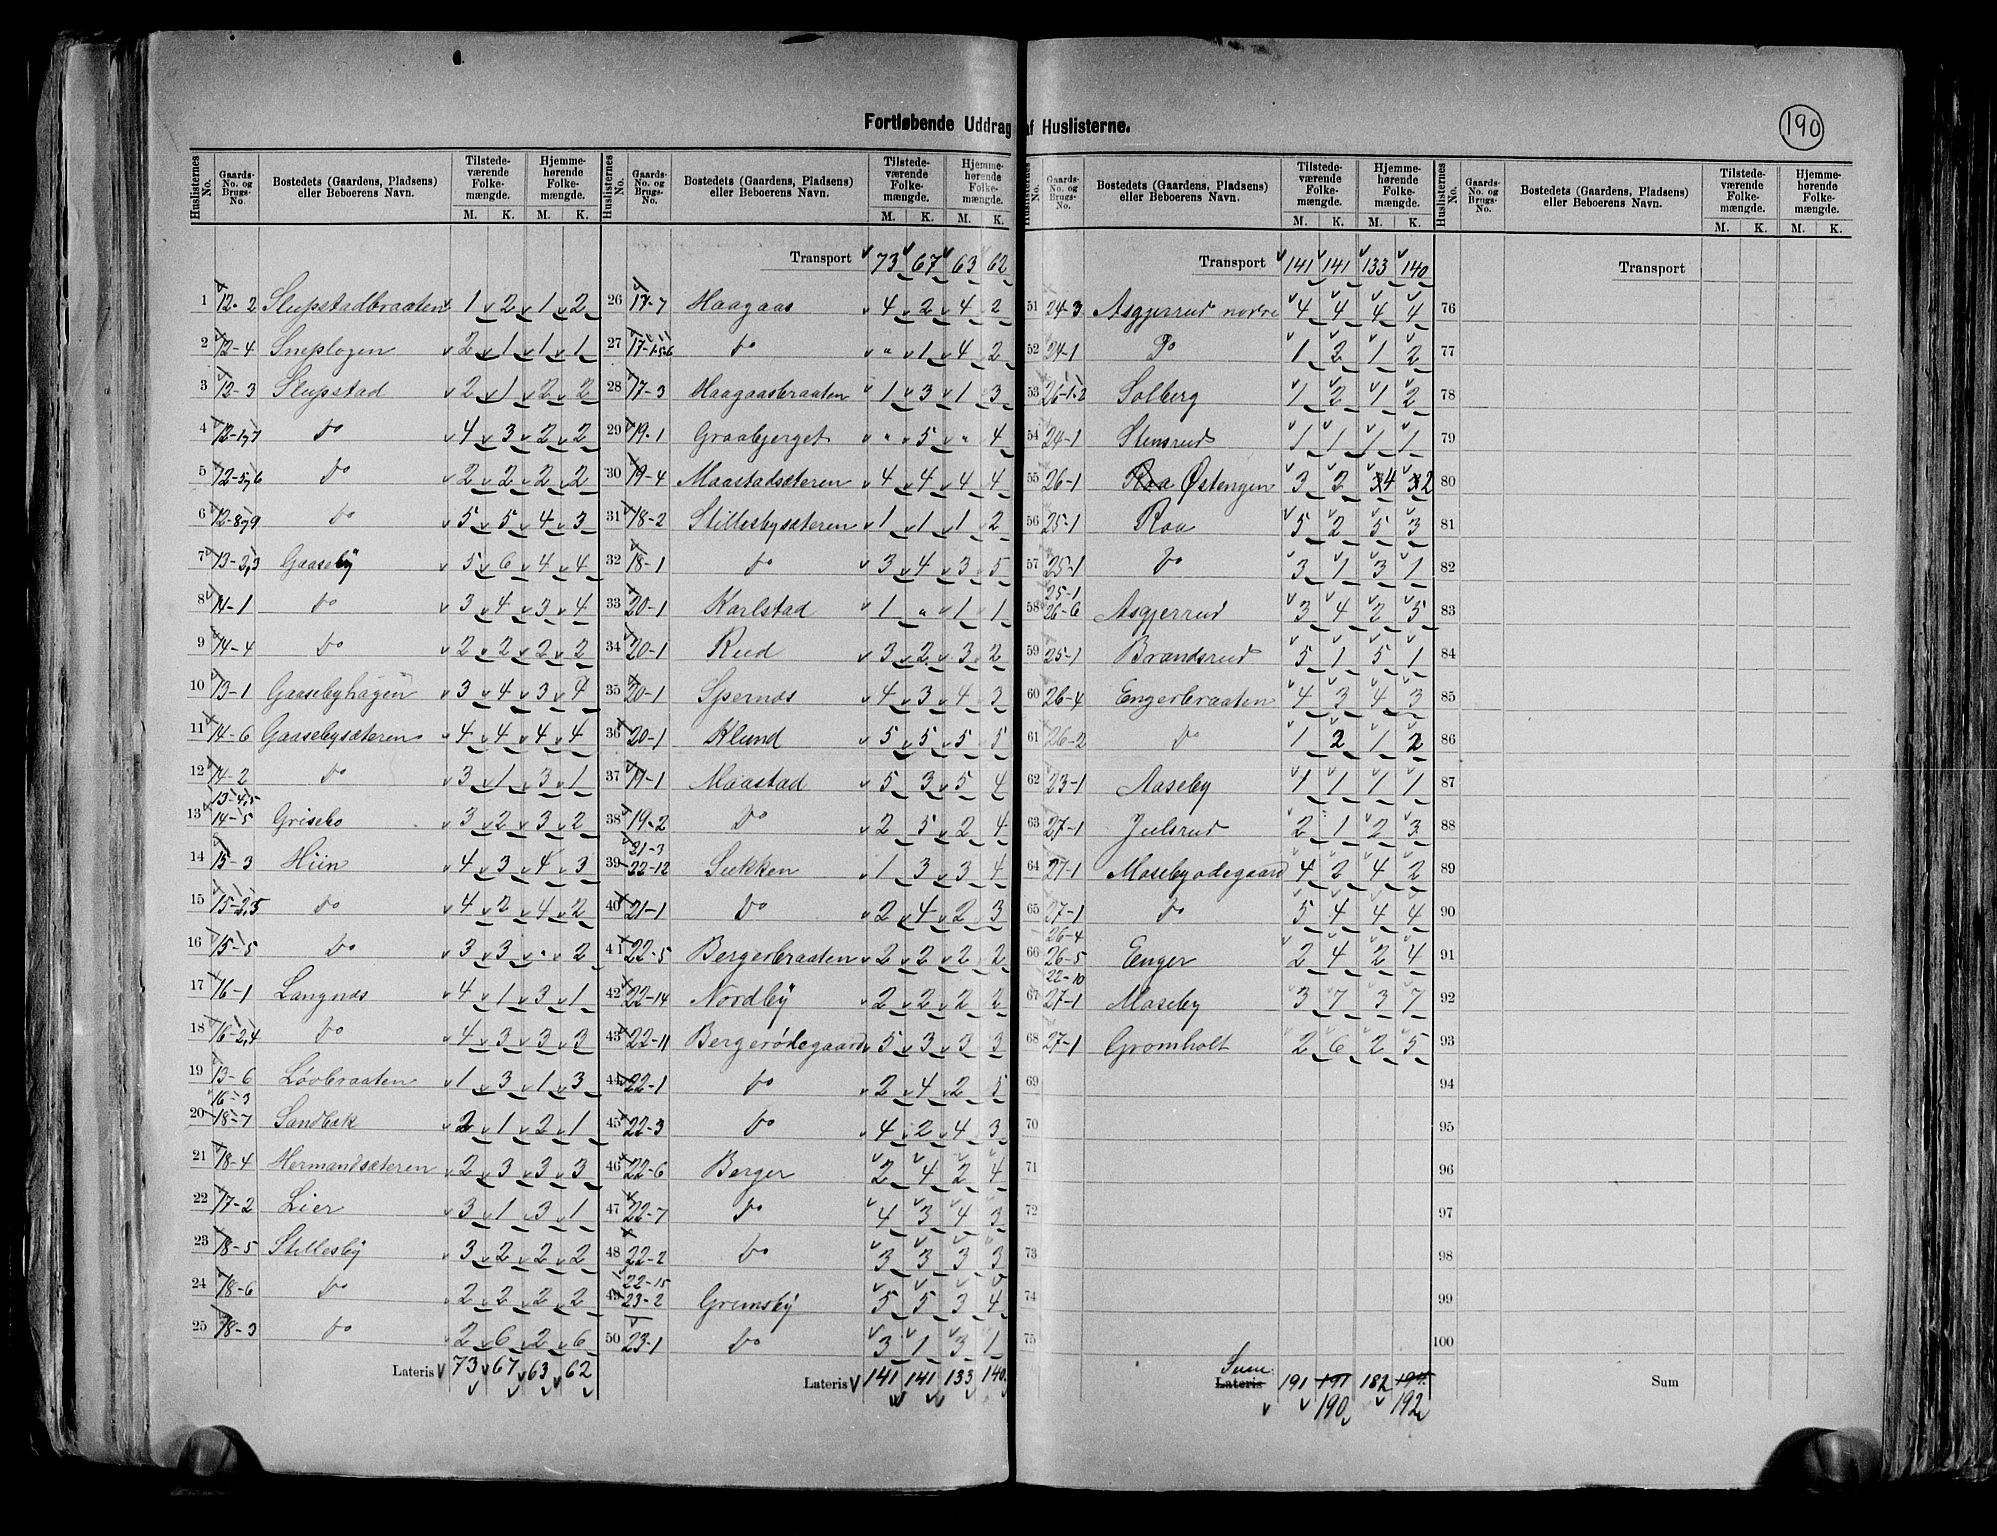 190
Fortløbende Uddrag af Huslisterne.
Huslisternes No. Gaards-No. og Brugs-No. Bostedets (Gaardens, Pladsens) eller Beboerens Navn. Tilstedeværende Folkemængde. M. K. Hjemmehørende Folkemængde. M. K.
1 12-2 Slupstadbraaten 1 2 1 2
2 12-4 Sneplogen 2 1 1 1
3 12-3 Slupstad 2 1 2 2
4 12-1,7 Do 4 3 2 2
5 12-5,6 Do 2 2 2 2
6 12-8,9 Do 5 5 4 3
7 13-2,3 Gaaseby 5 6 4 4
8 14-1 Do 3 4 3 4
9 14-4 Do 2 2 2 2
10 13-1 Gaasebyhagen 3 4 3 4
11 14-6 Gaasebysæteren 4 4 4 4
12 14-2 Do 3 1 3 1
13 13-4,5 14-5 Grisebo 3 2 3 2
14 15-3 Hiin 4 3 4 3
15 15-2,5 Do 4 2 4 2
16 15-5 Do 3 3 " 2
17 16-1 Langnæs 4 1 3 1
18 16-2,4 Do 4 3 3 3
19 13-6 Løvbraaten 1 3 1 3
20 16-3 18-7 Sandbæk 2 1 2 1
21 18-4 Hermandsæteren 2 3 3 3
22 17-2 Lier 3 1 3 1
23 18-5 Stillesby 3 2 2 2
24 18-6 Do 2 2 2 2
25 18-3 Do 2 6 2 6
Lateris 73 67 63 62
Transport 73 67 63 62
26 17-7 Haagaas 4 2 4 2
27 17-1,5,6 Do " 1 4 2
28 17-3 Haagaasbraaten 1 3 1 3
29 19-1 Graabjerget " 5 " 4
30 19-4 Maastadsæteren 4 4 4 4
31 18-2 Stillesbysæteren 1 1 1 2
32 18-1 Do 3 4 3 5
33 20-1 Karlstad 1 " 1 1
34 20-1 Rud 3 2 3 2
35 20-1 Spernæs 4 3 4 3
36 20-1 Klund 5 5 5 5
37 19-1 Maastad 5 3 5 4
38 19-2 Do 2 5 2 4
39 21-3 22-12 Sækken 1 3 3 4
40 21-1 Do 2 4 2 3
41 22-5 Bergerbraaten 2 2 2 2
42 22-14 Nordby 2 2 2 2
43 22-11 Bergerødegaard 5 3 3 3
44 22-1 Do 2 4 2 5
45 22-3 Do 4 2 4 3
46 22-6 Berger 2 4 2 4
47 22-7 Do 4 3 4 3
48 22-2 Do 3 3 3 3
49 22-15 23-2 Gremsby 5 5 3 4
50 23-1 Do 3 1 3 1
Lateris 141 141 133 140
Transport 141 141 133 140
51 24-3 Asgjerrud nordre 4 4 4 4
52 24-1 Do 1 2 1 2
53 26-1,2 Solberg 1 2 1 2
54 24-1 Stensrud 1 1 1 1
55 26-1 Raa Østengen 3 2 3 4 3 2
56 25-1 Raa 5 2 5 3
57 25-1 Do 3 1 3 1
58 25-1 26-6 Asgjerrud 3 4 2 5
59 25-1 Brandsrud 5 1 5 1
60 26-4 Engerbraaten 4 3 4 3
61 26-2 Do 1 2 1 2
62 23-1 Aaseby 1 1 1 1
63 27-1 Julsrud 2 1 2 3
64 27-1 Mosebyødegaard 4 2 4 2
65 27-1 Do 5 4 4 4
66 26-4 26-5 Enger 2 4 2 4
67 22-10 27-1 Moseby 3 7 3 7
68 27-1 Gromholt 2 6 2 5
69
70
71
72
73
74
75
Sum Lateris 191 191 182 194
190 192
Transport
76
77
78
79
80
81
82
83
84
85
86
87
88
89
90
91
92
93
94
95
96
97
98
99
100
Sum